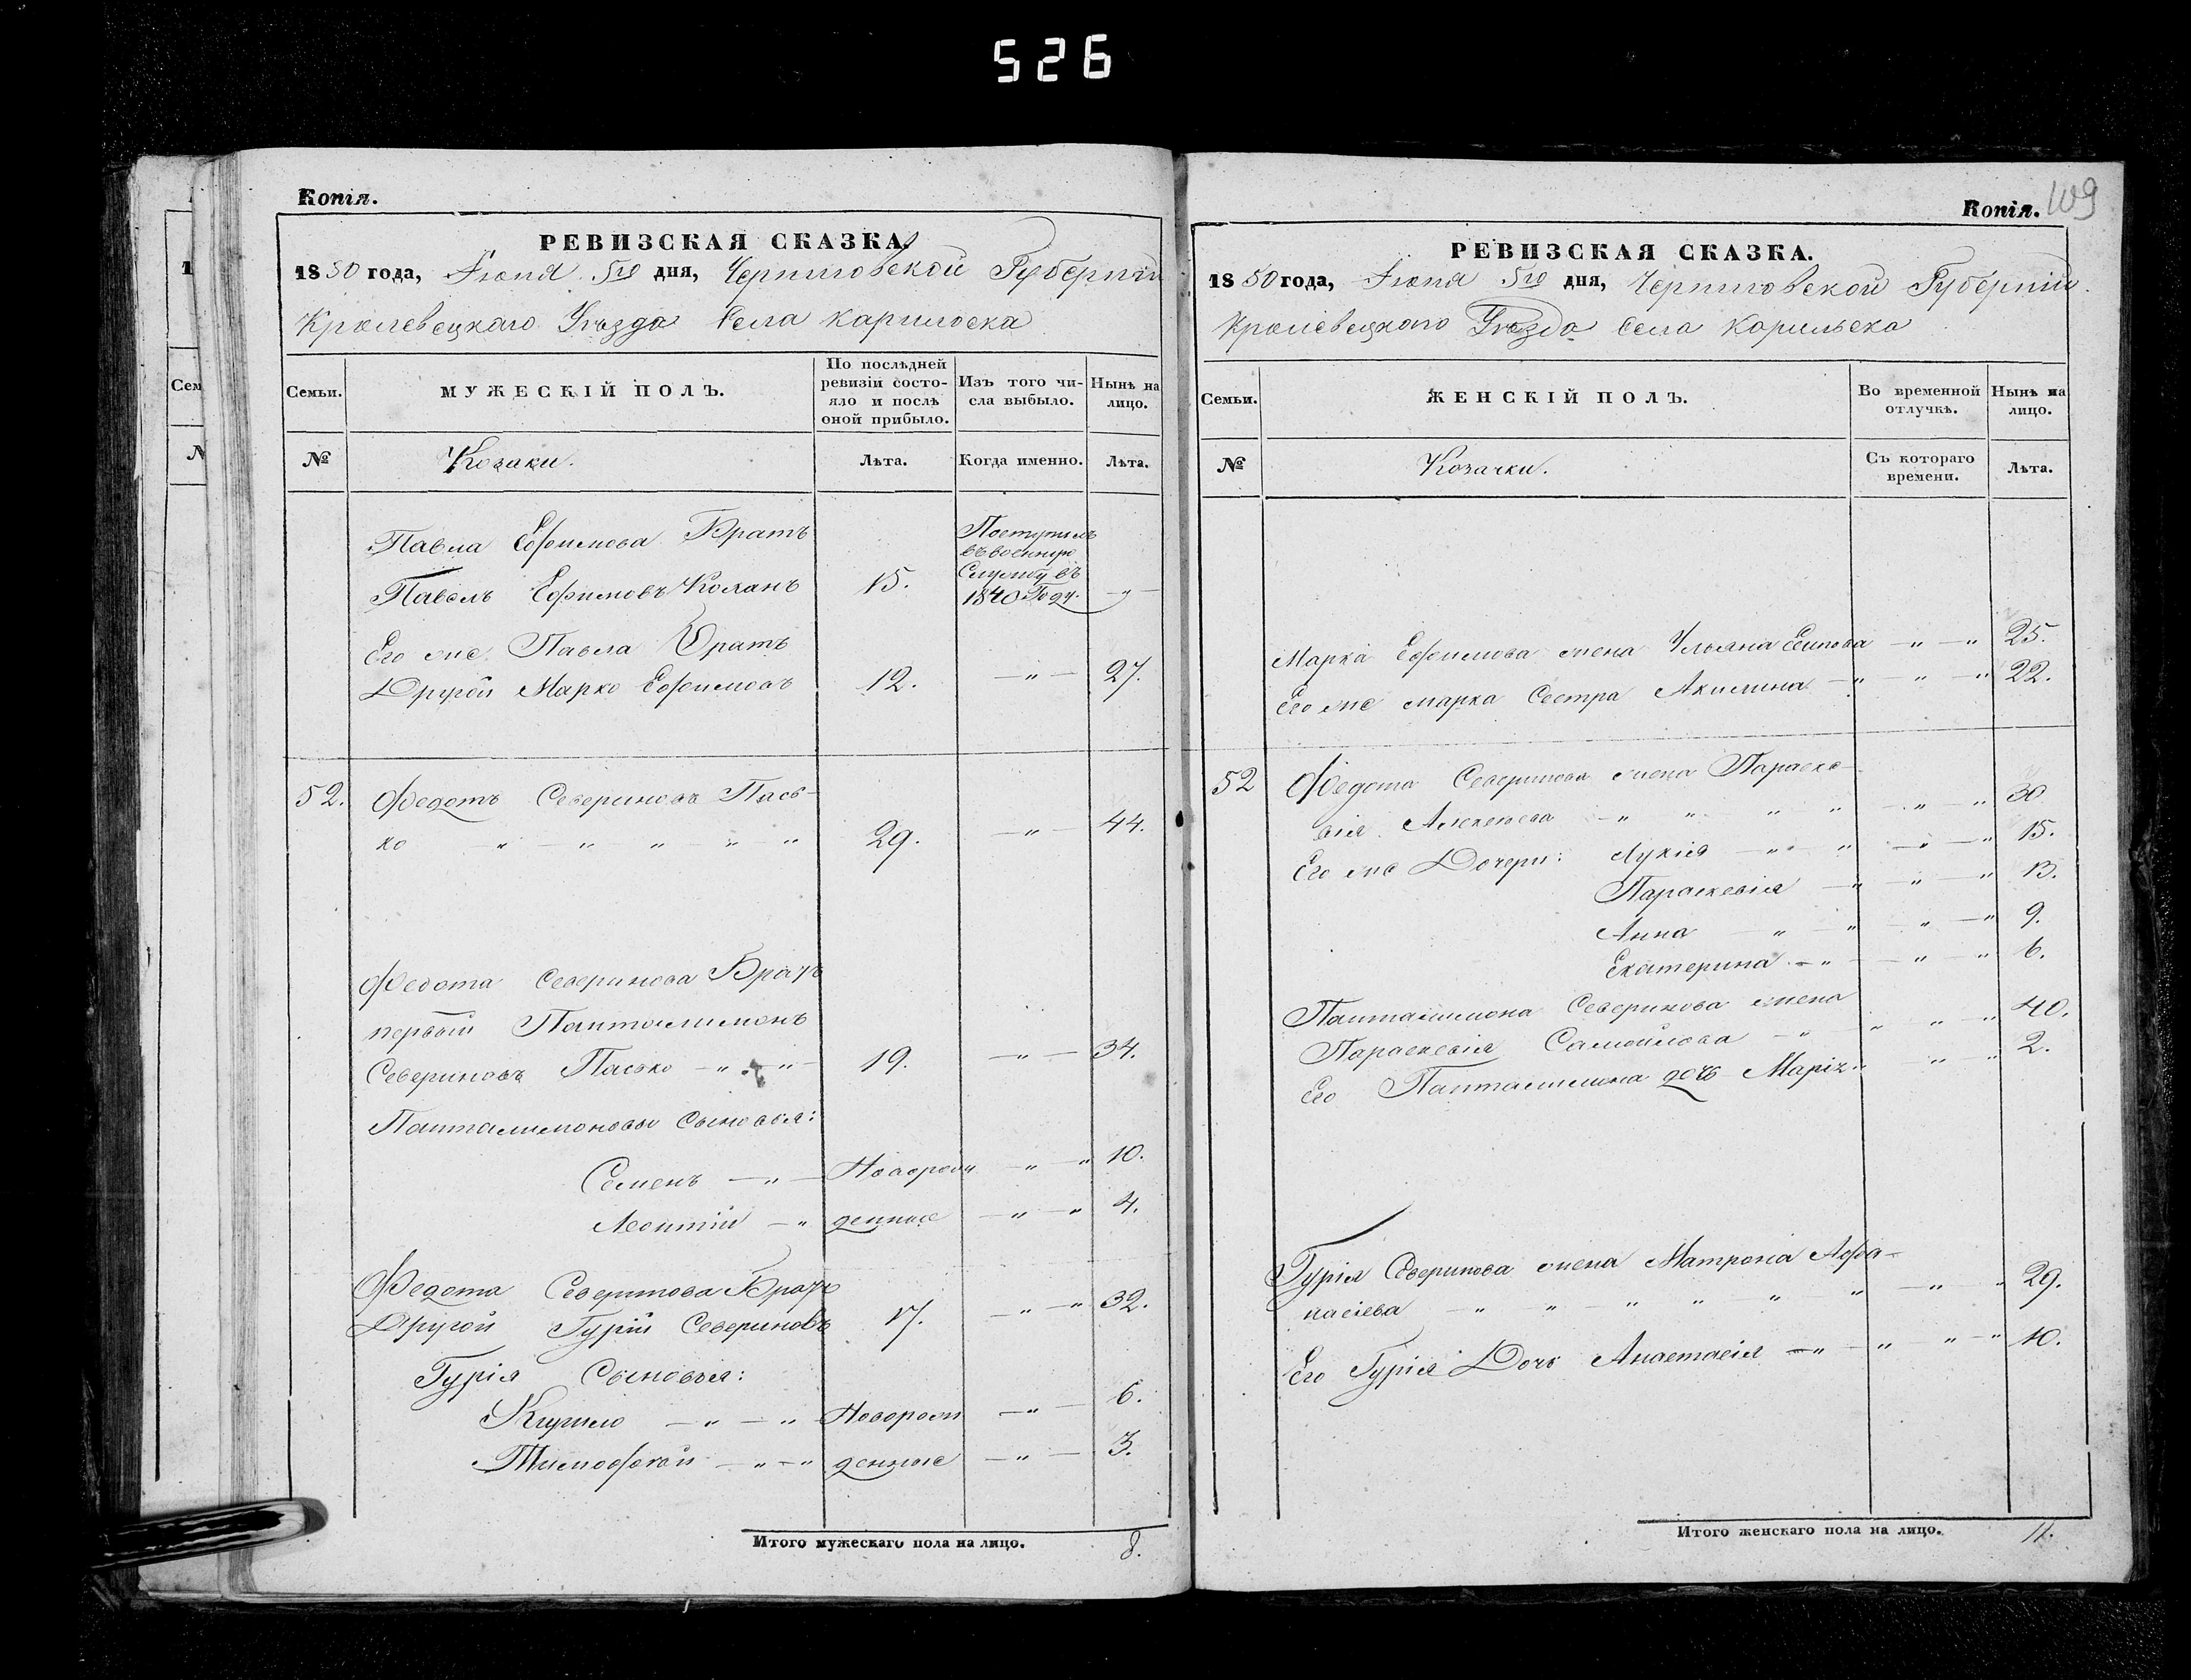 526
Копія.
РЕВИЗСКАЯ СКАЗКА.
1850 года, Іюня 5го дня, Черниговской Губерніи
Кролевецкаго Уѣзда Села Карильска
Семьи.
МУЖЕСКІЙ ПОЛЪ.
По послѣдней ревизіи состояло и послѣ оной прибыло.
Изъ того числа выбыло.
Нынѣ на лицо.
№
Козаки.
Лѣта.
Когда именно.
Лѣта.
Павла Ефимова Братъ
Павелъ Ефимовъ 15. Поступилъ въ военную Службу въ 1840 Году. — " —
Его же Павла Братъ
Другой Марко Ефимовъ 12. — " — 27.
52. Федотъ Севериновъ Пась-
ко — " — " " — " — " 29. — " — 44.
Федота Северинова Братъ
первый Панталимонъ
Севериновъ Пасько — " — " — 19. — " — 34.
Панталимоновы Сыновья:
Семенъ — " — Новорож — " — " 10.
Леонтій — " денные — " — " 4.
Федота Северинова Братъ
Другой Гурій Севериновъ 17. — " — " 32.
Гурія Сыновья:
Кирило — " — " Новорож — " — 6.
Тимофей — " — " денные — " — 3.
Итого мужескаго пола на лицо. 8.
Копія. 109
РЕВИЗСКАЯ СКАЗКА.
1850 года, Іюня 5го дня, Черниговской Губерніи
Кролевецкаго Уѣзда Села Карильска
Семьи.
ЖЕНСКІЙ ПОЛЪ.
Во временной отлучкѣ.
Нынѣ на лицо.
№
Козачки.
Съ котораго времени.
Лѣта.
Марка Ефимова жена Ульяна — " — " 25.
Его же марка Сестра Акилина — " — " — " 22.
52 Федота Северинова жена Параске-
вія Алексѣева — " " " " — " — " 30
Его же Дочери: Лукія — " " — " — " 15.
Параскевія — " — " — " 13.
Анна — " — " " — " 9.
Екатерина — " — " — " 6.
Панталимона Северинова жена
Параскевія Самойлова — " — " " — " 40.
Его Панталимона дочь Марія " " — " 2.
Гурія Северинова жена Матрона Афа-
насіева — " " — " " " " — " " 29.
Его Гурія Дочь Анастасія — " — " " — " 10.
Итого женскаго пола на лицо. 11.